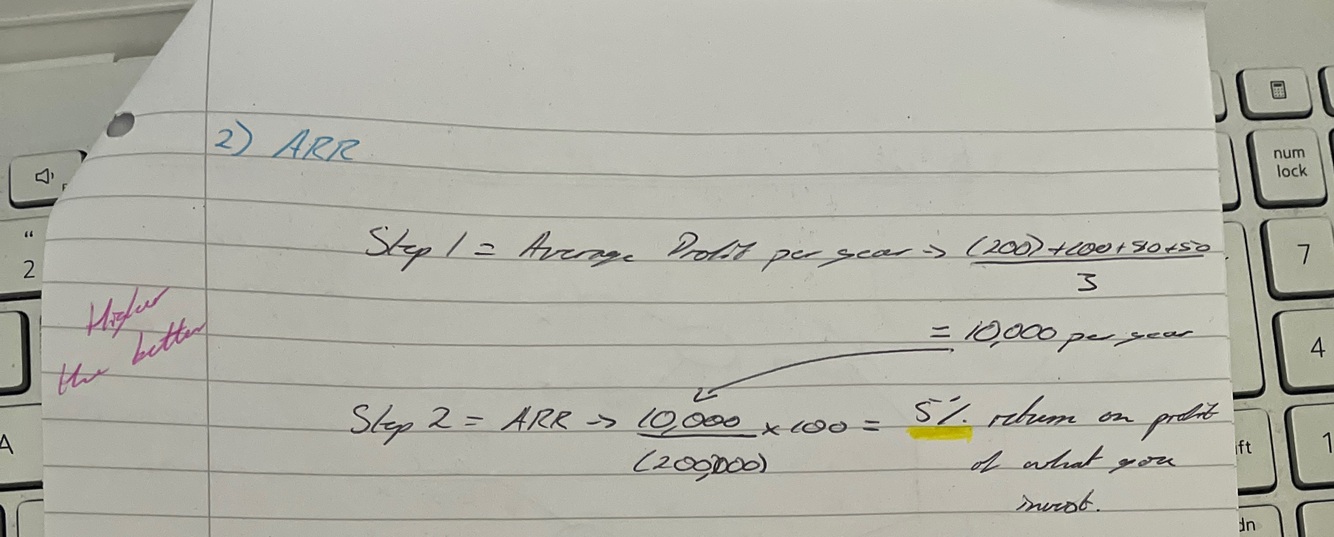 2) ARR
Step 1 = Average Profit per year → (200)+100+80+50
3
= 10,000 per year
Higher
the better
Step 2 = ARR → 10,000 × 100 = 5% return on profit
(200,000) of what you
invest.
num
lock
"
2
7
4
A
1
ft
dn